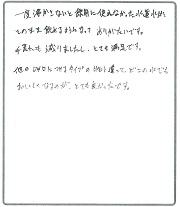 一度沸かさないと飲用に使えなかった水道水が
そのまま飲めるようになって ありがたいです。
手荒れも減りましたし、とても満足です。
他の 蛇口につけるタイプの 違って、どこの水でも
おいしくなるのが、とても良かったです。